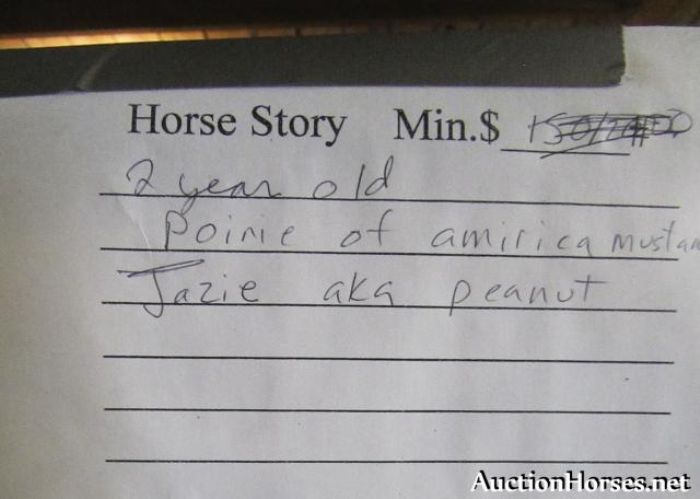 Horse Story Min.$
2 year old
Poinie of amirica musta
Jazie aka peanut
AuctionHorses.net